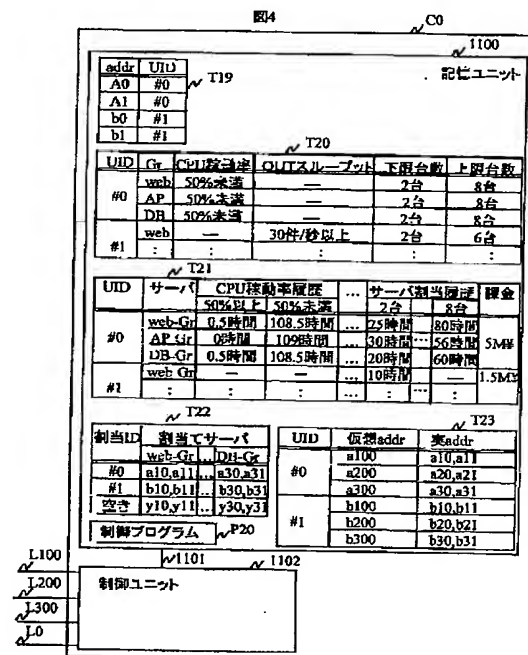 図4
C0
1100
記憶ユニット
addr UID T19
A0 #0
A1 #0
b0 #1
b1 #1
T20
UID Gr CPU稼動率 OUTスループット 下限台数 上限台数
#0 web 50%未満 — 2台 8台
AP 50%未満 — 2台 8台
DB 50%未満 — 2台 8台
#1 web — 30件/秒以上 2台 6台
: : : : :
T21
UID サーバ CPU稼動率履歴 … サーバ割当履歴 課金
50%以上 50%未満 2台 8台
#0 web-Gr 0.5時間 108.5時間 … 25時間 80時間 5M¥
AP-Gr 0時間 109時間 … 30時間 … 56時間
DB-Gr 0.5時間 108.5時間 … 20時間 60時間
#1 web-Gr — — … 10時間 — 1.5M¥
: : : … : … :
T22
割当ID 割当てサーバ
web-Gr … DB-Gr
#0 a10,a11 … a30,a31
#1 b10,b11 … b30,b31
空き y10,y11 … y30,y31
T23
UID 仮想addr 実addr
#0 a100 a10,a11
a200 a20,a21
a300 a30,a31
#1 b100 b10,b11
b200 b20,b21
b300 b30,b31
制御プログラム P20
1101
1102
L100
L200
L300
L0
制御ユニット